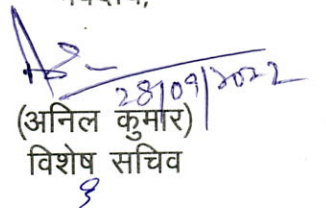 28/09/2022
(अनिल कुमार)
विशेष सचिव